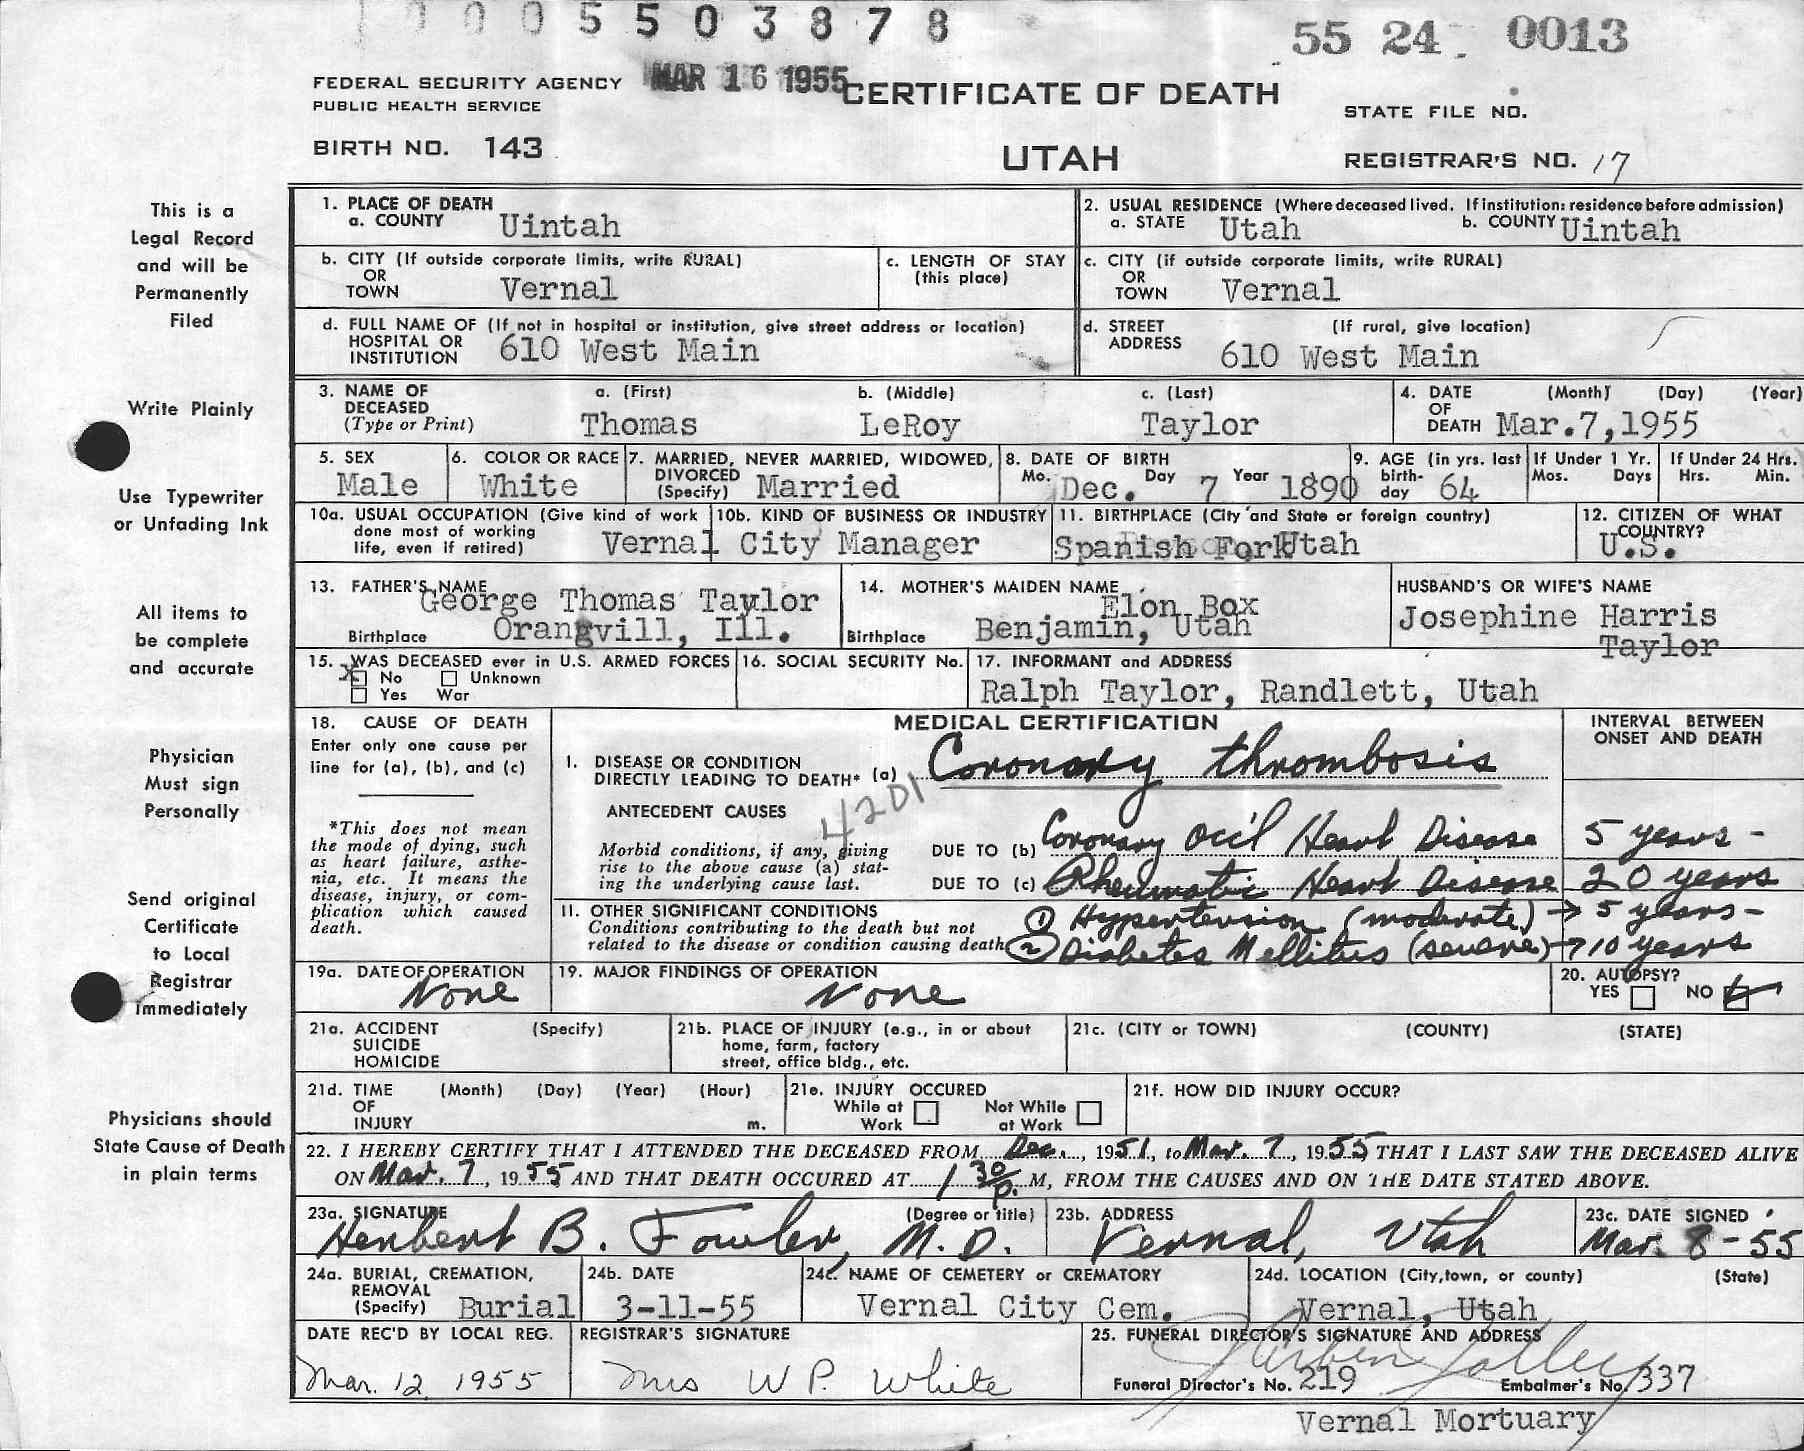 0005503878
55 24 0013
FEDERAL SECURITY AGENCY MAR 16 1955 CERTIFICATE OF DEATH
PUBLIC HEALTH SERVICE
STATE FILE NO.
BIRTH NO. 143 UTAH REGISTRAR'S NO. 17
This is a
Legal Record
and will be
Permanently
Filed
Write Plainly
Use Typewriter
or Unfading Ink
All items to
be complete
and accurate
Physician
Must sign
Personally
Send original
Certificate
to Local
Registrar
Immediately
Physicians should
State Cause of Death
in plain terms
1. PLACE OF DEATH
a. COUNTY Uintah
2. USUAL RESIDENCE (Where deceased lived. If institution: residence before admission)
a. STATE Utah b. COUNTY Uintah
b. CITY (If outside corporate limits, write RURAL)
OR
TOWN Vernal
c. LENGTH OF STAY
(this place)
c. CITY (if outside corporate limits, write RURAL)
OR
TOWN Vernal
d. FULL NAME OF (If not in hospital or institution, give street address or location)
HOSPITAL OR
INSTITUTION 610 West Main
d. STREET (If rural, give location)
ADDRESS 610 West Main
3. NAME OF a. (First) b. (Middle) c. (Last)
DECEASED
(Type or Print) Thomas LeRoy Taylor
4. DATE (Month) (Day) (Year)
OF
DEATH Mar.7,1955
5. SEX
Male
6. COLOR OR RACE
White
7. MARRIED, NEVER MARRIED, WIDOWED,
DIVORCED
(Specify) Married
8. DATE OF BIRTH
Mo. Dec. Day 7 Year 1890
9. AGE (in yrs. last
birth-
day 64
If Under 1 Yr.
Mos. Days
If Under 24 Hrs.
Hrs. Min.
10a. USUAL OCCUPATION (Give kind of work
done most of working
life, even if retired)
10b. KIND OF BUSINESS OR INDUSTRY
Vernal City Manager
11. BIRTHPLACE (City and State or foreign country)
Spanish Fork Utah
12. CITIZEN OF WHAT
COUNTRY?
U.S.
13. FATHER'S NAME
George Thomas Taylor
Birthplace Orangvill, Ill.
14. MOTHER'S MAIDEN NAME
Elon Box
Birthplace Benjamin, Utah
HUSBAND'S OR WIFE'S NAME
Josephine Harris
Taylor
15. WAS DECEASED ever in U.S. ARMED FORCES
X No Unknown
Yes War
16. SOCIAL SECURITY No.
17. INFORMANT and ADDRESS
Ralph Taylor, Randlett, Utah
18. CAUSE OF DEATH
Enter only one cause per
line for (a), (b), and (c)
*This does not mean
the mode of dying, such
as heart failure, asthe-
nia, etc. It means the
disease, injury, or com-
plication which caused
death.
MEDICAL CERTIFICATION
INTERVAL BETWEEN
ONSET AND DEATH
I. DISEASE OR CONDITION
DIRECTLY LEADING TO DEATH* (a) Coronary thrombosis
4201
ANTECEDENT CAUSES
Morbid conditions, if any, giving
rise to the above cause (a) stat-
ing the underlying cause last.
DUE TO (b) Coronary Occ'l Heart Disease 5 years -
DUE TO (c) Rheumatic Heart Disease 20 years
II. OTHER SIGNIFICANT CONDITIONS
Conditions contributing to the death but not
related to the disease or condition causing death
① Hypertension (moderate) → 5 years -
② Diabetes Mellitus (severe) → 10 years
19a. DATE OF OPERATION
None
19. MAJOR FINDINGS OF OPERATION
None
20. AUTOPSY?
YES NO
21a. ACCIDENT (Specify)
SUICIDE
HOMICIDE
21b. PLACE OF INJURY (e.g., in or about
home, farm, factory
street, office bldg., etc.
21c. (CITY or TOWN) (COUNTY) (STATE)
21d. TIME (Month) (Day) (Year) (Hour)
OF
INJURY m.
21e. INJURY OCCURED
While at Work Not While at Work
21f. HOW DID INJURY OCCUR?
22. I HEREBY CERTIFY THAT I ATTENDED THE DECEASED FROM Dec., 1951, to Mar. 7, 1955, THAT I LAST SAW THE DECEASED ALIVE
ON Mar. 7, 1955 AND THAT DEATH OCCURED AT 1 30 P. M, FROM THE CAUSES AND ON THE DATE STATED ABOVE.
23a. SIGNATURE (Degree or title)
Herbert B. Fowler, M.D.
23b. ADDRESS
Vernal, Utah
23c. DATE SIGNED
Mar. 8-55
24a. BURIAL, CREMATION,
REMOVAL
(Specify) Burial
24b. DATE
3-11-55
24c. NAME OF CEMETERY or CREMATORY
Vernal City Cem.
24d. LOCATION (City, town, or county) (State)
Vernal, Utah
DATE REC'D BY LOCAL REG.
Mar. 12, 1955
REGISTRAR'S SIGNATURE
Mrs W P. White
25. FUNERAL DIRECTOR'S SIGNATURE AND ADDRESS
Funeral Director's No. 219 Embalmer's No. 337
Vernal Mortuary